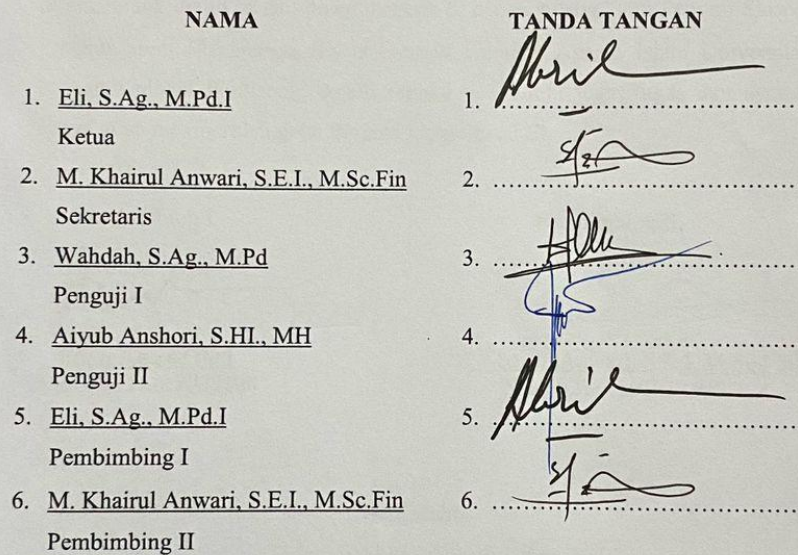 NAMA TANDA TANGAN
1. Eli, S.Ag., M.Pd.I 1. ....................................
Ketua
2. M. Khairul Anwari, S.E.I., M.Sc.Fin 2. ....................................
Sekretaris
3. Wahdah, S.Ag., M.Pd 3. ....................................
Penguji I
4. Aiyub Anshori, S.HI., MH 4. ....................................
Penguji II
5. Eli, S.Ag., M.Pd.I 5. ....................................
Pembimbing I
6. M. Khairul Anwari, S.E.I., M.Sc.Fin 6. ....................................
Pembimbing II